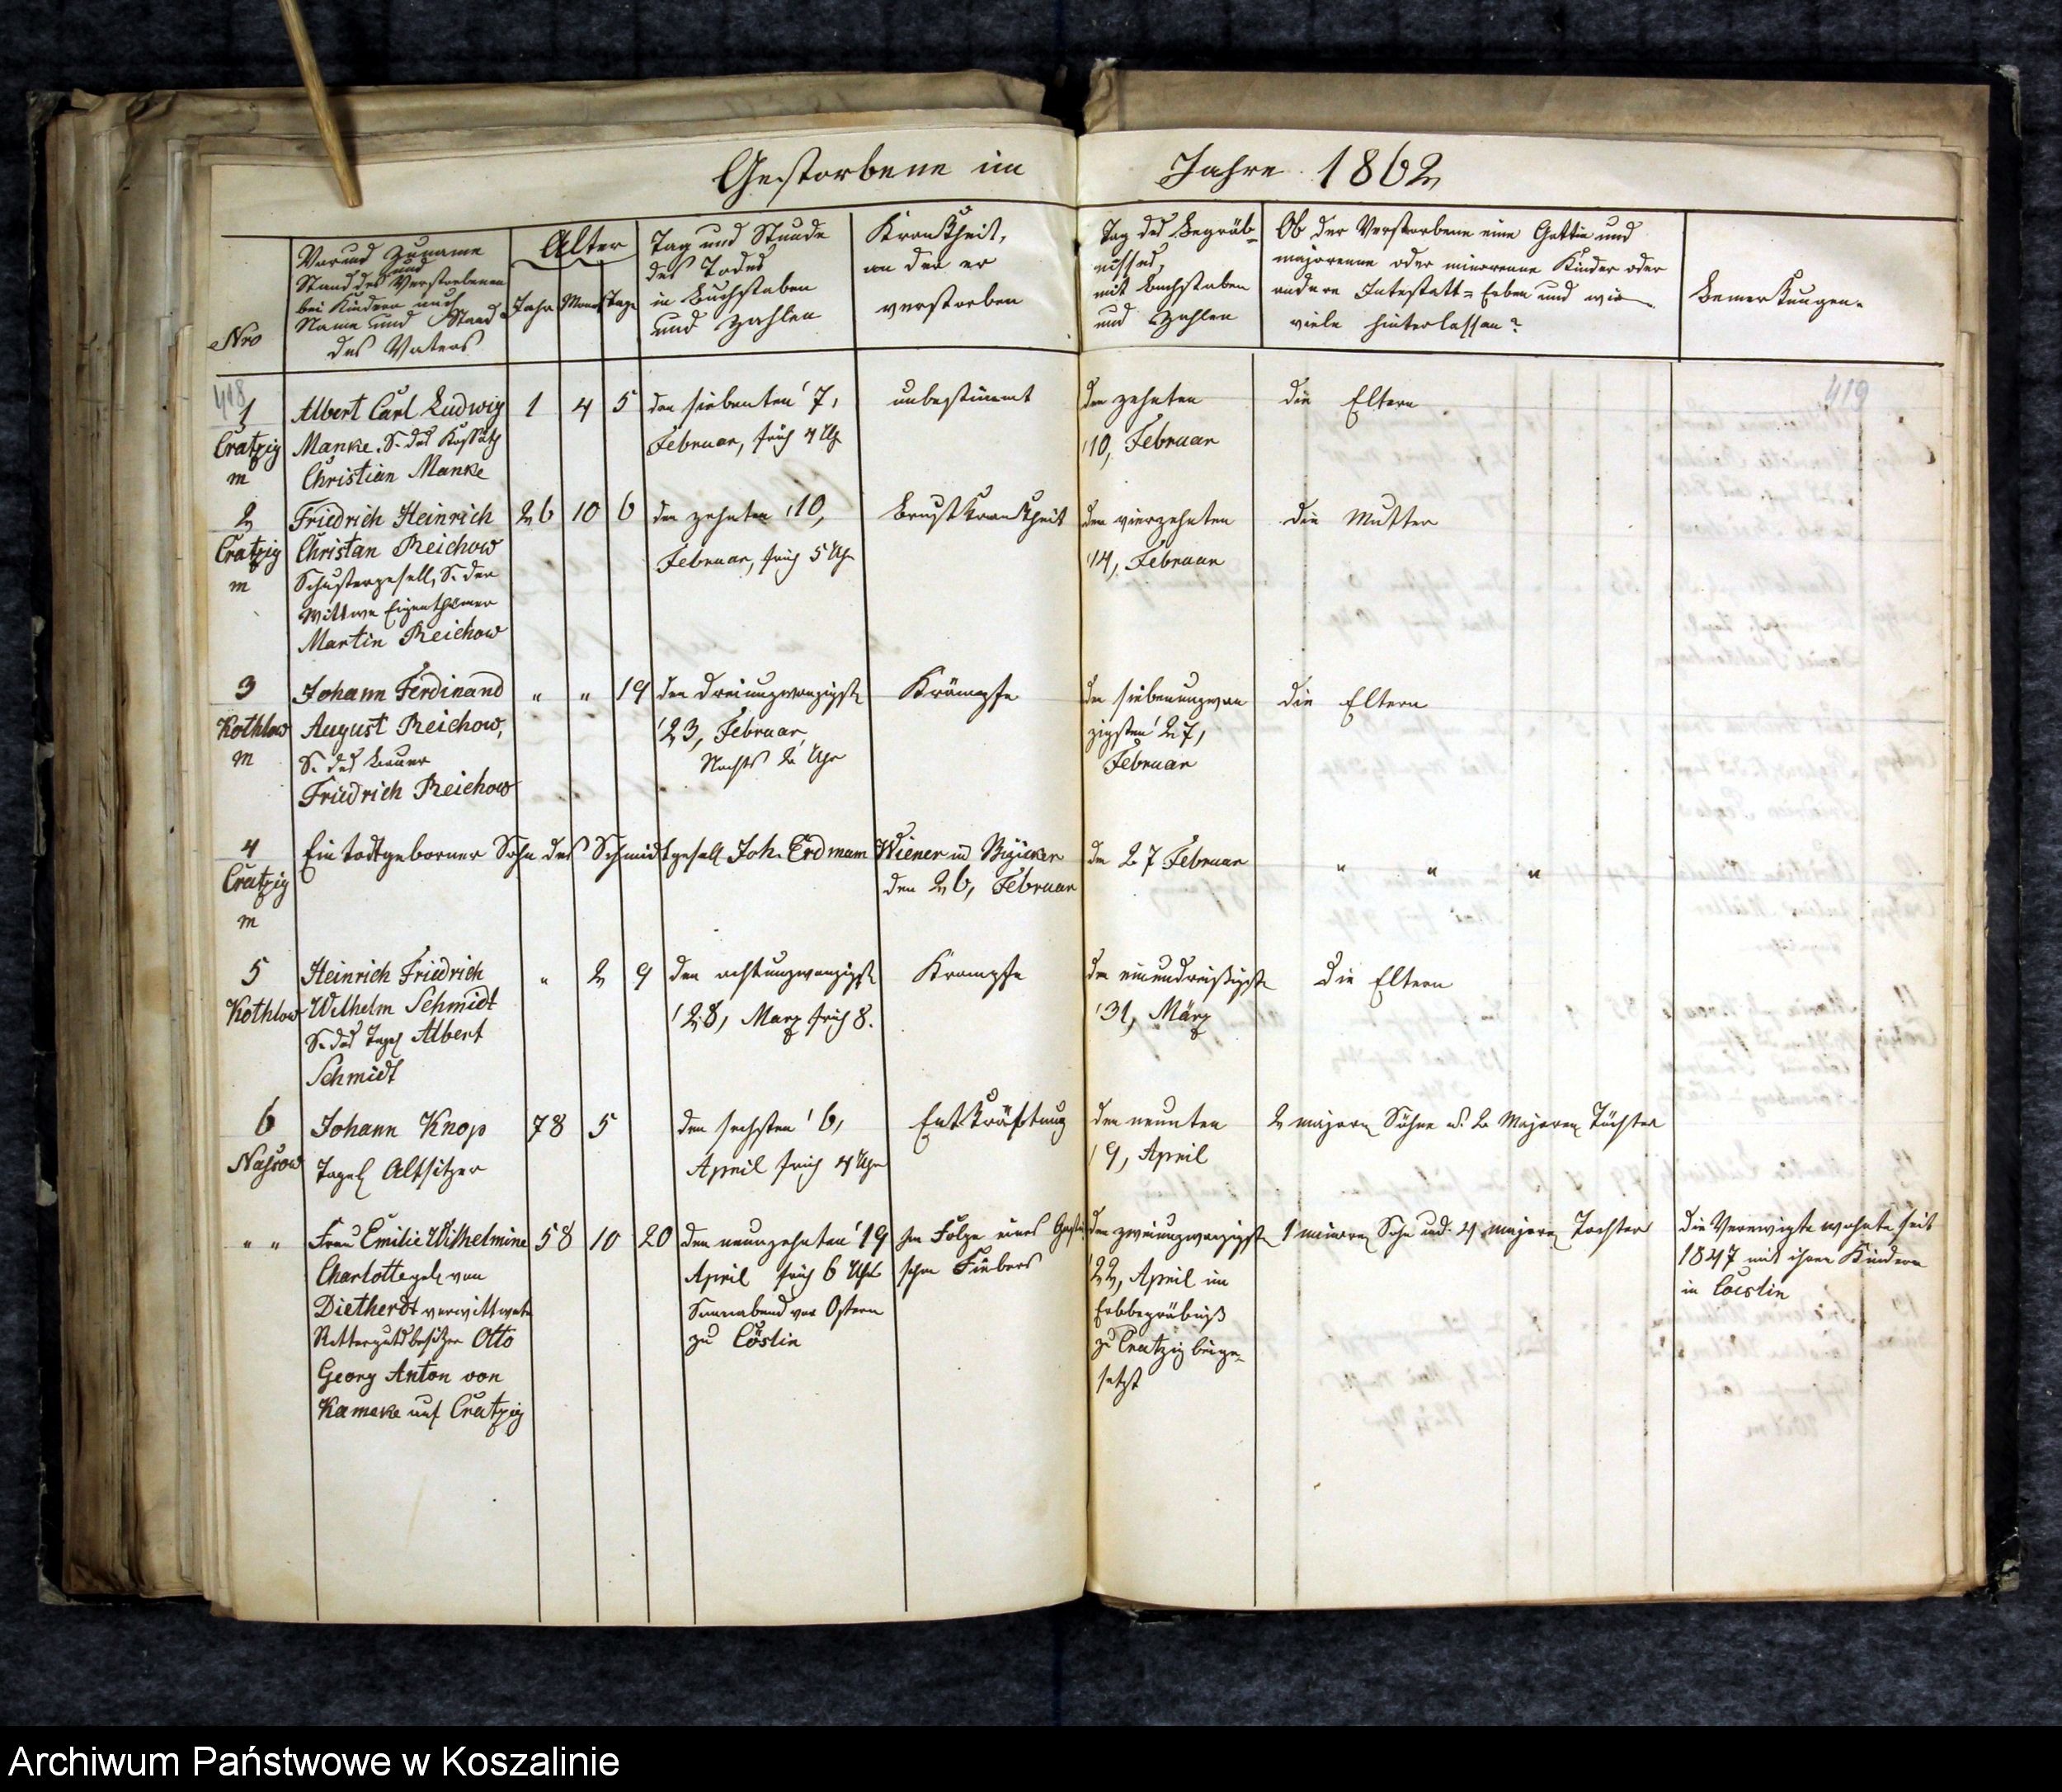 Gestorbene im Jahre 1862
Nro
Vor und Zuname
und
Stand des Verstorbenen
bei Kindern auch
Name und Stand
des Vaters
Alter
Jahr Monat Tage
Tag und Stunde
des Todes
in Buchstaben
und Zahlen
Krankheit,
an der er
verstorben
Tag des Begräb-
nisses,
mit Buchstaben
und Zahlen
Ob der Verstorbene eine Gattin und
majorenne oder minorenne Kinder oder
andere Intestatt-Erben und wie
viele hinterlassen?
Bemerkungen.
418
419
1
Cratzig
m
Albert Carl Ludwig
Manke, S. des Kossäth
Christian Manke
1 4 5
den siebenten 7,
Februar, früh 4 Uhr
unbestimmt
den zehnten
10, Februar
die Eltern
2
Cratzig
m
Friedrich Heinrich
Christan Reichow
Schustergesell, S. der
Wittwe Eigenthümer
Martin Reichow
26 10 6
den zehnten 10,
Februar, früh 5 Uhr
Brustkrankheit
den vierzehnten
14, Februar
die Mutter
3
Kothlow
m
Johann Ferdinand
August Reichow,
S. des Bauer
Friedrich Reichow
" " 19
den dreiundzwanzigsten
23, Februar,
Nachts 2 Uhr
Krämpfe
den siebenundzwan
zigsten 27,
Februar
die Eltern
4
Cratzig
m
Ein todtgeborner Sohn des Schmidtgesell Joh. Erdmann Wiener in
den 26, Februar
den 27 Februar
" " "
5
Kothlow
Heinrich Friedrich
Wilhelm Schmidt
S. des Tagel Albert
Schmidt
" 2 9
den achtundzwanzigsten
28, März früh 8.
Krampfe
den einunddreißigsten
31, März
die Eltern
6
Nassow
Johann Knop
Tagel Altsitzer
78 5
den sechsten 6,
April früh 4 Uhr
Entkräftung
den neunten
9, April
2 majoren Söhne u. 2 Majoren Töchter
" "
Frau Emilie Wilhelmine
Charlotte geb von
Dietherdt verwittwete
Rittergutsbesitzer Otto
Georg Anton von
Kameke auf Cratzig
58 10 20
den neunzehnten 19
April früh 6 Uhr
Sonnabend vor Ostern
zu Cöslin
In Folge eines Gastri
schen Fiebers
den zweiundzwanzigsten
22, April im
Erbbegräbniß
zu Cratzig beige-
setzt
1 minoren Sohn und 4 majoren Tochter
Die Verewigte wohnte seit
1847 mit ihren Kindern
in Coeslin
Archiwum Państwowe w Koszalinie